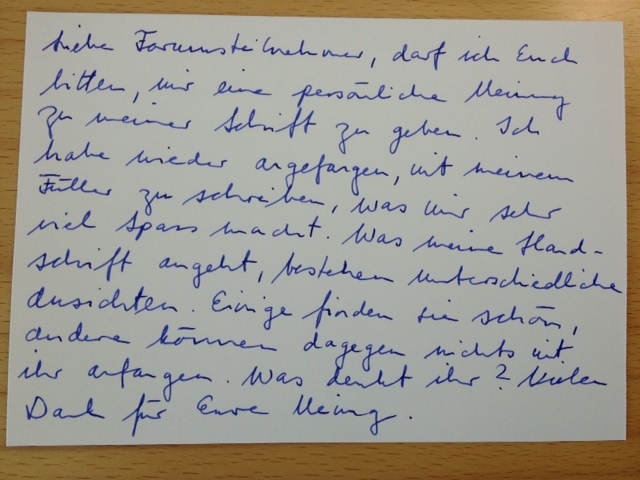 Liebe Forumsteilnehmer, darf ich Euch
bitten, mir eine persönliche Meinung
zu meiner Schrift zu geben. Ich
habe wieder angefangen, mit meinem
Füller zu schreiben, was mir sehr
viel Spass macht. Was meine Hand-
schrift angeht, bestehen unterschiedliche
Ansichten. Einige finden sie schön,
andere können dagegen nichts mit
ihr anfangen. Was denkt ihr? Vielen
Dank für Eure Meinung.